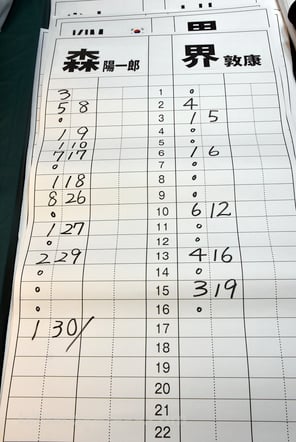 森 陽一郎 界 敦康
3 1 0
5 8 2 4
0 3 1 5
1 9 4 0
1 10 5 0
7 17 6 1 6
0 7 0
1 18 8 0
8 26 9 0
0 10 6 12
1 27 11 0
0 12 0
2 29 13 4 16
0 14 0
0 15 3 19
0 16 0
1 30/ 17
18
19
20
21
22